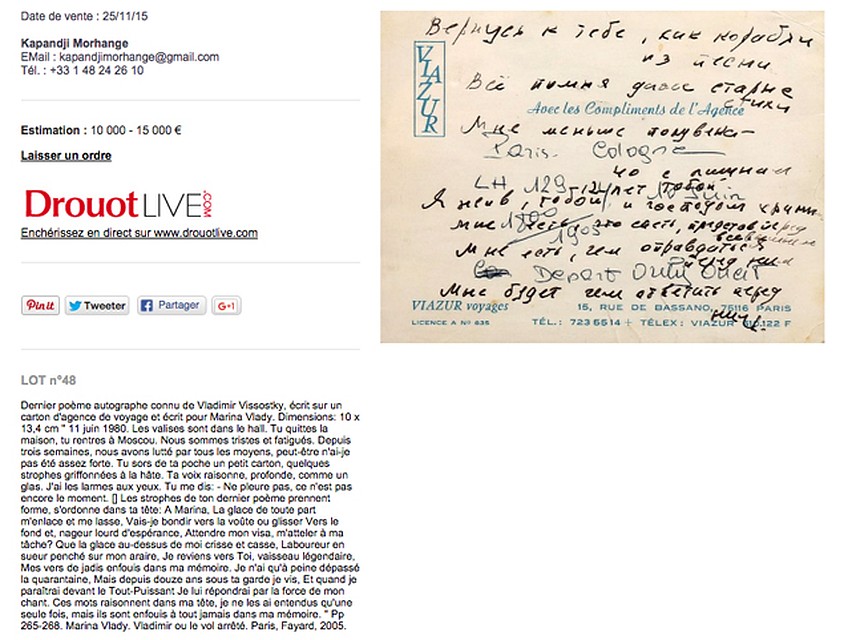 Date de vente : 25/11/15
Kapandji Morhange
EMail : kapandjimorhange@gmail.com
Tél. : +33 1 48 24 26 10
Estimation : 10 000 - 15 000 €
Laisser un ordre
Drouot LIVE .COM
Enchérissez en direct sur www.drouotlive.com
Pin it Tweeter Partager G+1
LOT n°48
Dernier poème autographe connu de Vladimir Vissostky, écrit sur un
carton d'agence de voyage et écrit pour Marina Vlady. Dimensions: 10 x
13,4 cm " 11 juin 1980. Les valises sont dans le hall. Tu quittes la
maison, tu rentres à Moscou. Nous sommes tristes et fatigués. Depuis
trois semaines, nous avons lutté par tous les moyens, peut-être n'ai-je
pas été assez forte. Tu sors de ta poche un petit carton, quelques
strophes griffonnées à la hâte. Ta voix raisonne, profonde, comme un
glas. J'ai les larmes aux yeux. Tu me dis: - Ne pleure pas, ce n'est pas
encore le moment. [] Les strophes de ton dernier poème prennent
forme, s'ordonne dans ta tête: A Marina, La glace de toute part
m'enlace et me lasse, Vais-je bondir vers la voûte ou glisser Vers le
fond et, nageur lourd d'espérance, Attendre mon visa, m'atteler à ma
tâche? Que la glace au-dessus de moi crisse et casse, Laboureur en
sueur penché sur mon araire, Je reviens vers Toi, vaisseau légendaire,
Mes vers de jadis enfouis dans ma mémoire. Je n'ai qu'à peine dépassé
la quarantaine, Mais depuis douze ans sous ta garde je vis, Et quand je
paraîtrai devant le Tout-Puissant Je lui répondrai par la force de mon
chant. Ces mots raisonnent dans ma tête, je ne les ai entendus qu'une
seule fois, mais ils sont enfouis à tout jamais dans ma mémoire. " Pp
265-268. Marina Vlady. Vladimir ou le vol arrêté. Paris, Fayard, 2005.
Вернусь к тебе, как корабли
из песни
VIAZUR
Всё помня даже старые
стихи
Avec les Compliments de l'Agence
Мне меньше полувека—
Paris. Cologne
LH 129 12 лет тобой
Я жив, тобой и господом храним
мне есть, что спеть, представ перед
всевышним
1905
Мне есть, чем оправдаться
перед ним
Depart Orly Ouest
Мне будет чем ответить перед
ним.
VIAZUR voyages
15, RUE DE BASSANO, 75116 PARIS
LICENCE A N° 635
TÉL.: 723 5514 + TÉLEX: VIAZUR 122 F